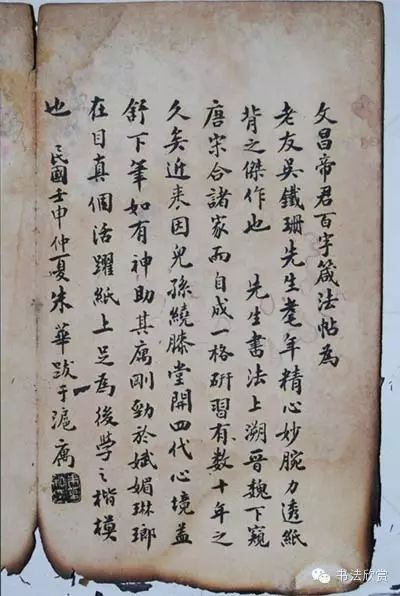 文昌帝君百字箴法帖為
老友吳鐵珊先生耄年精心妙腕力透紙
背之傑作也 先生書法上溯晉魏下窺
唐宋合諸家而自成一格研習有數十年之
久矣近来因兒孫繞膝堂開四代心境益
舒下筆如有神助其寓剛勁於娬媚琳瑯
在目真個活躍紙上足為後學之楷模
也 民國壬申仲夏朱華跋于滬寓
书法欣赏